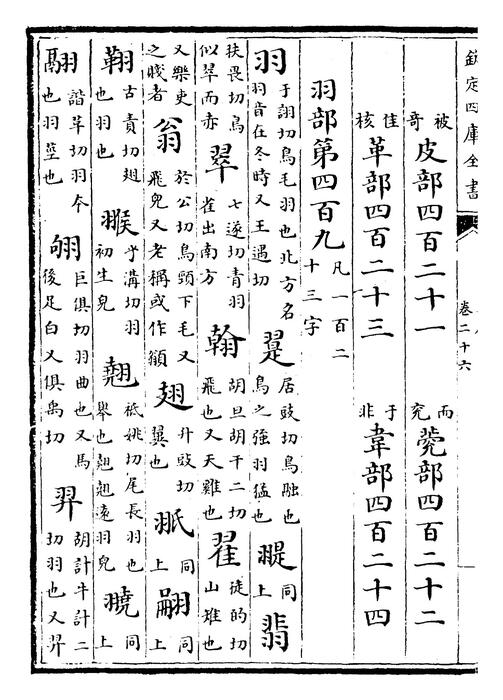 欽定四庫全書 卷二十六
被奇 皮部四百二十一 而兖 㼱部四百二十二
佳核 革部四百二十三 于非 韋部四百二十四
羽部第四百九 凡一百二十三字
羽 于詡切鳥毛羽也北方名羽音在冬時又王遇切 翨 居豉切鳥融也鳥之強羽猛也 同上 翡
扶畏切鳥似翠而赤 翠 七遂切青羽雀出南方 翰 胡旦胡干二切飛也又天雞也 翟 徒的切山雉也
又樂吏之賤者 翁 於公切鳥頸下毛又飛皃又老稱或作 翅 升豉切翼也 同上 翤 同上
䎒 古責切翅也羽也 翭 乎溝切羽初生皃 翹 祇姚切尾長羽也舉也翹翹遠羽皃 同上
翮 諧革切羽本也羽莖也 翑 巨俱切羽曲也又馬後足白又俱禹切 羿 胡計牛計二切羽也又羿